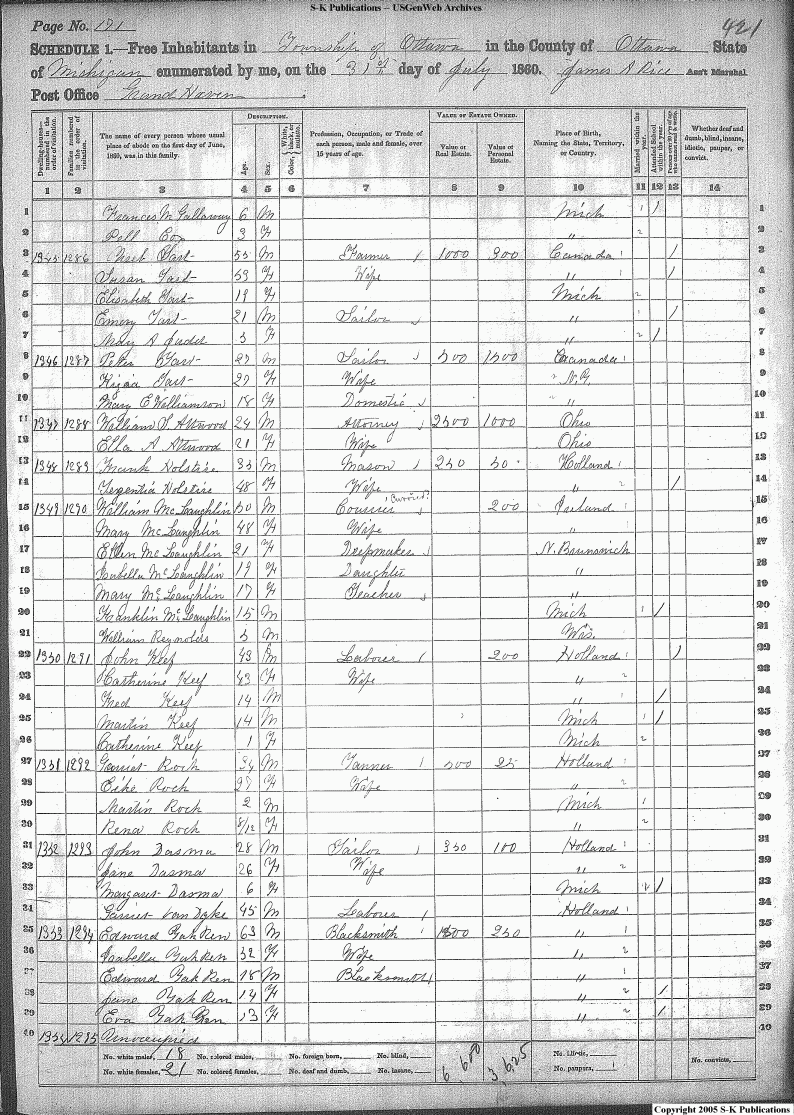 S-K Publications – USGenWeb Archives
Page No. 191
421
SCHEDULE 1.—Free Inhabitants in Township of Ottawa in the County of Ottawa State
of Michigan enumerated by me, on the 31st day of July 1860. James A Rice Ass't Marshal
Post Office Grand Haven.
Dwelling-houses—numbered in the order of visitation.
Families numbered in the order of visitation.
The name of every person whose usual place of abode on the first day of June, 1860, was in this family.
DESCRIPTION.
Age.
Sex.
Color, White, black, or mulatto.
Profession, Occupation, or Trade of each person, male and female, over 15 years of age.
VALUE OF ESTATE OWNED.
Value of Real Estate.
Value of Personal Estate.
Place of Birth, Naming the State, Territory, or Country.
Married within the year.
Attended School within the year.
Persons over 20 y'rs of age who cannot read & write.
Whether deaf and dumb, blind, insane, idiotic, pauper, or convict.
1 2 3 4 5 6 7 8 9 10 11 12 13 14
1 Frances M Gallaway 6 M Mich / 1
2 Pell Cox 3 F " 2
3 1345 1286 55 M Farmer 1000 300 Canada / 3
4 Susan 53 F Wife " / 4
5 Elisabeth 19 F Mich 5
6 Emery 21 M Sailor " / 6
7 Mary A Judd 3 F " / 7
8 1346 1287 Peter 27 M Sailor 500 1500 Canada 8
9 27 F Wife N.Y. 9
10 Mary E Williamson 18 F Domestic " 10
11 1347 1288 William S. Attwood 24 M Attorney 2500 1000 Ohio 11
12 Ella A Attwood 21 F Wife Ohio 12
13 1348 1289 Frank Holstire 35 M Mason 250 50 Holland 13
14 Holstire 48 F Wife " / 14
15 1349 1290 William McLaughlin 50 M Courier (Currier?) 200 Ireland 15
16 Mary McLaughlin 48 F Wife " 16
17 Ellen McLaughlin 21 F Dressmaker N. Brunswick 17
18 Isabella McLaughlin 19 F Daughter " 18
19 Mary McLaughlin 17 F Teacher " 19
20 Franklin McLaughlin 15 M Mich / 20
21 William Reynolds 5 M Wis. 21
22 1350 1291 John Keef 43 M Laborer 200 Holland / 22
23 Catherine Keef 43 F Wife " 23
24 Fred Keef 14 M " / 24
25 Martin Keef 14 M Mich / 25
26 Catherine Keef 1 F Mich 26
27 1351 1292 Garriet Rock 34 M Tanner 500 25 Holland 27
28 Eike Rock 27 F Wife " 28
29 Martin Rock 2 M Mich 29
30 Rena Rock 8/12 F " 30
31 1352 1293 John Dasma 28 M Sailor 350 100 Holland 31
32 Jane Dasma 26 F Wife " 32
33 Margaret Dasma 6 F Mich / 33
34 Garriet Van Dyke 45 M Laborer Holland 34
35 1353 1294 Edward Gahken 63 M Blacksmith 1500 250 " 35
36 Isabella Gahken 52 F Wife " 36
37 Edward Gahken 18 M Blacksmith " 37
38 Jane Gahken 14 F " / 38
39 Eva Gahken 13 F " / 39
40 1354 1295 Unoccupied 40
No. white males, 18 No. colored males, No. foreign born, No. blind, No. idiotic, No. convicts,
No. white females, 21 No. colored females, No. deaf and dumb, No. insane, 6,600 3,625 No. paupers,
Copyright 2005 S-K Publications